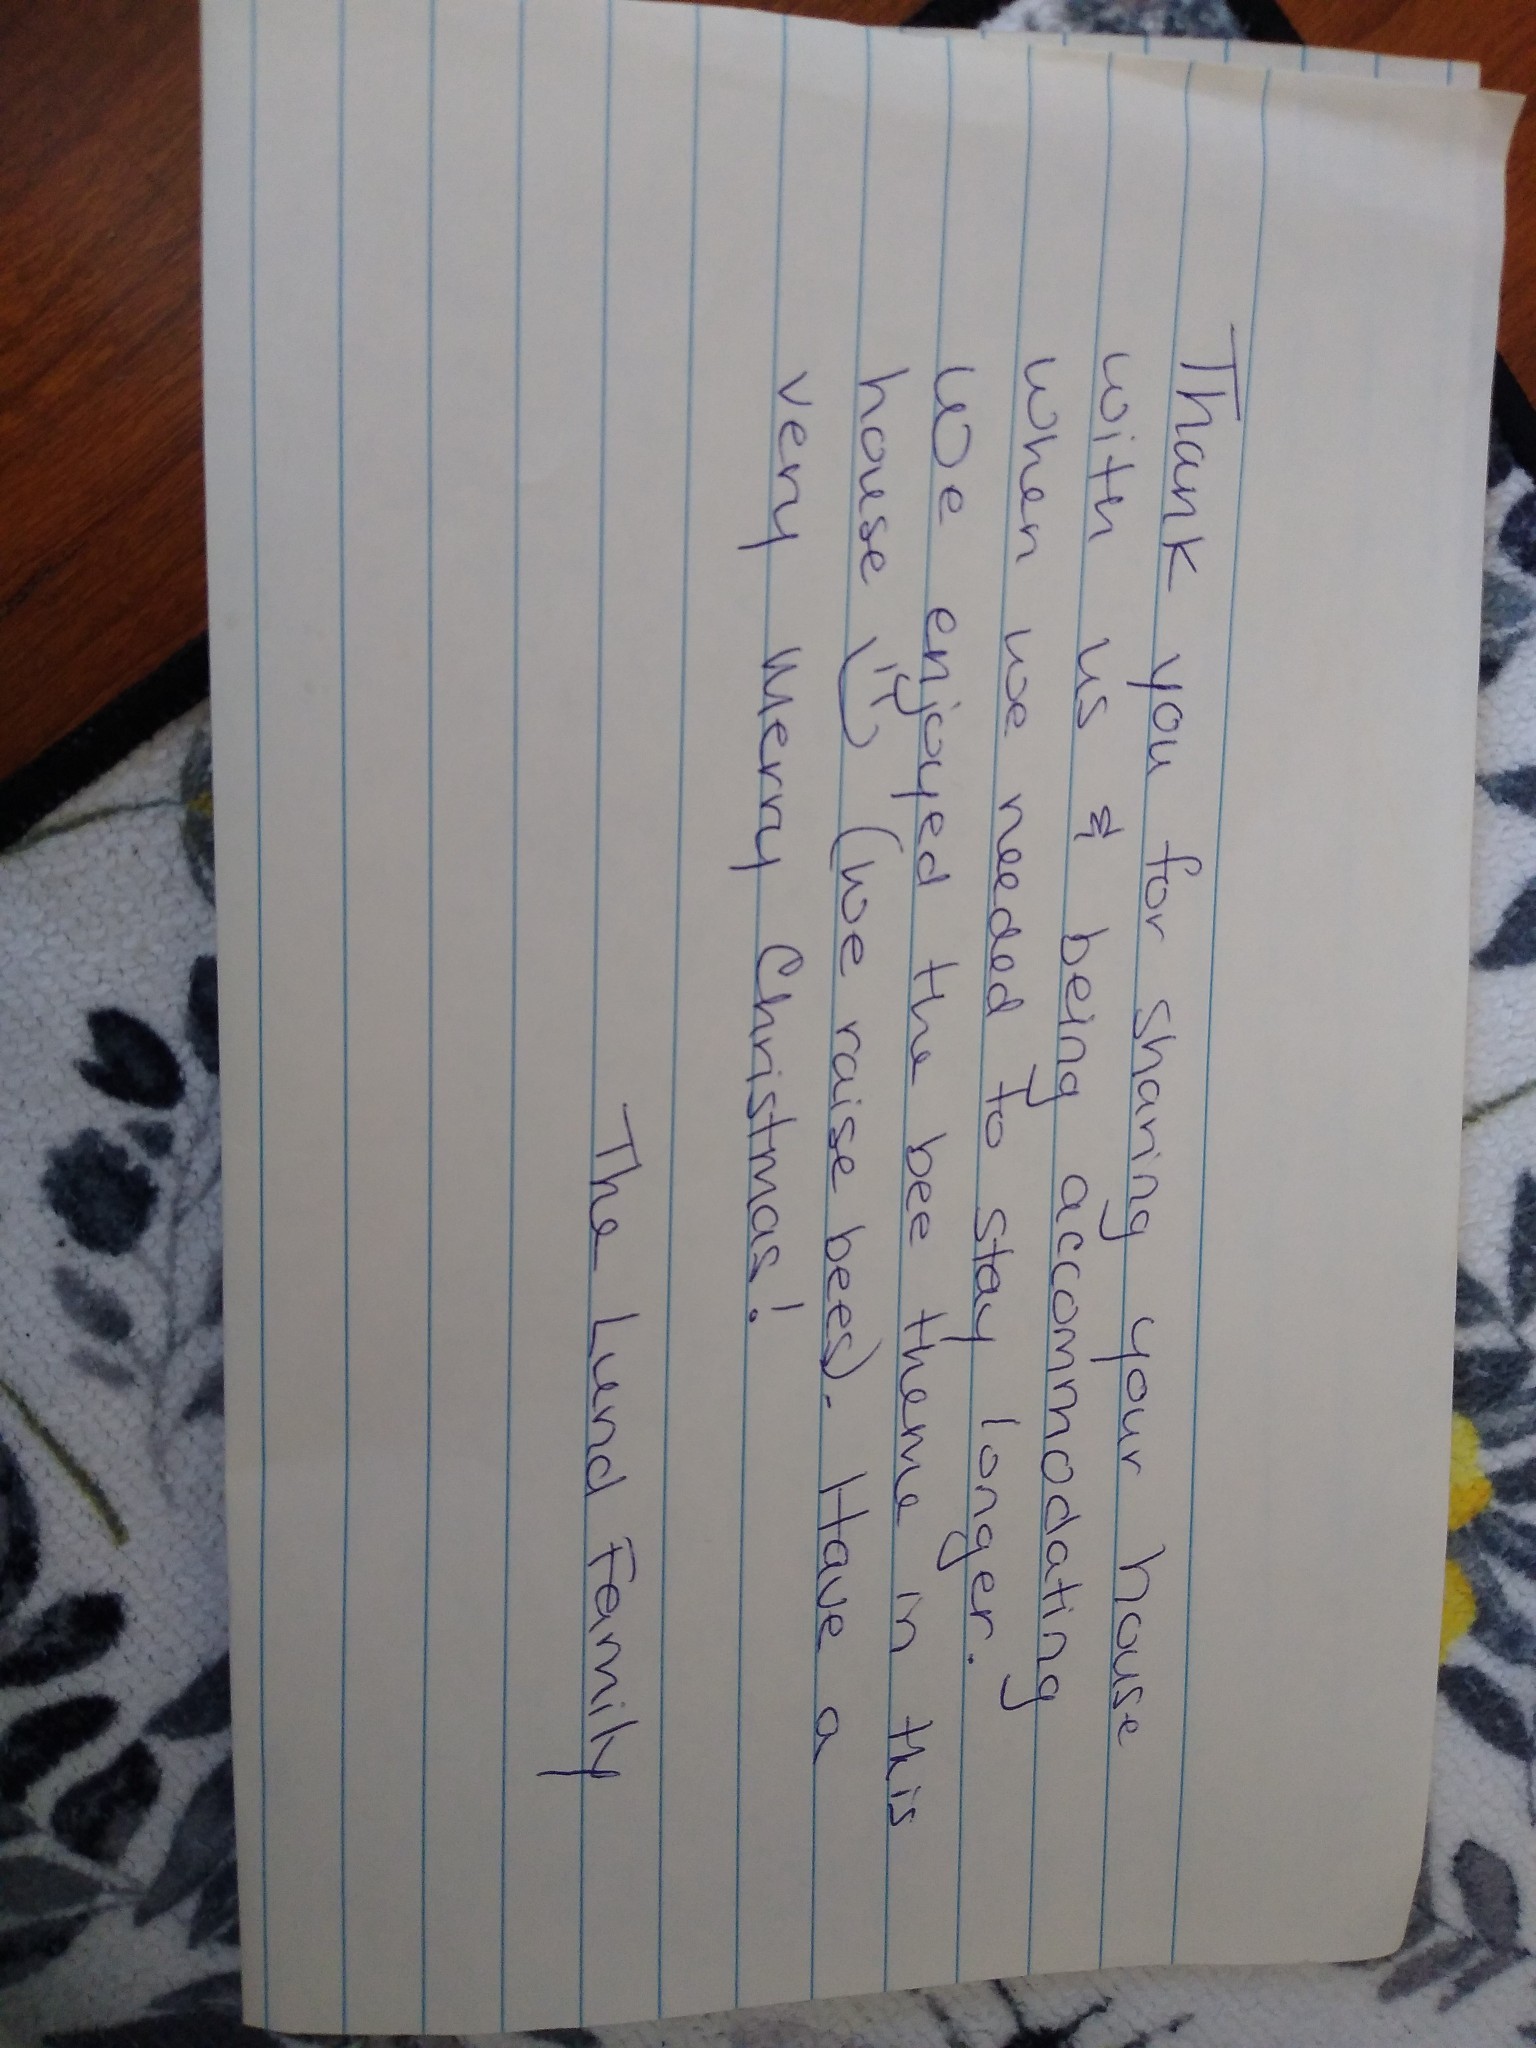 Thank you for sharing your house
with us & being accommodating
when we needed to stay longer.
We enjoyed the bee theme in this
house :) (we raise bees). Have a
very Merry Christmas!
The Lund Family